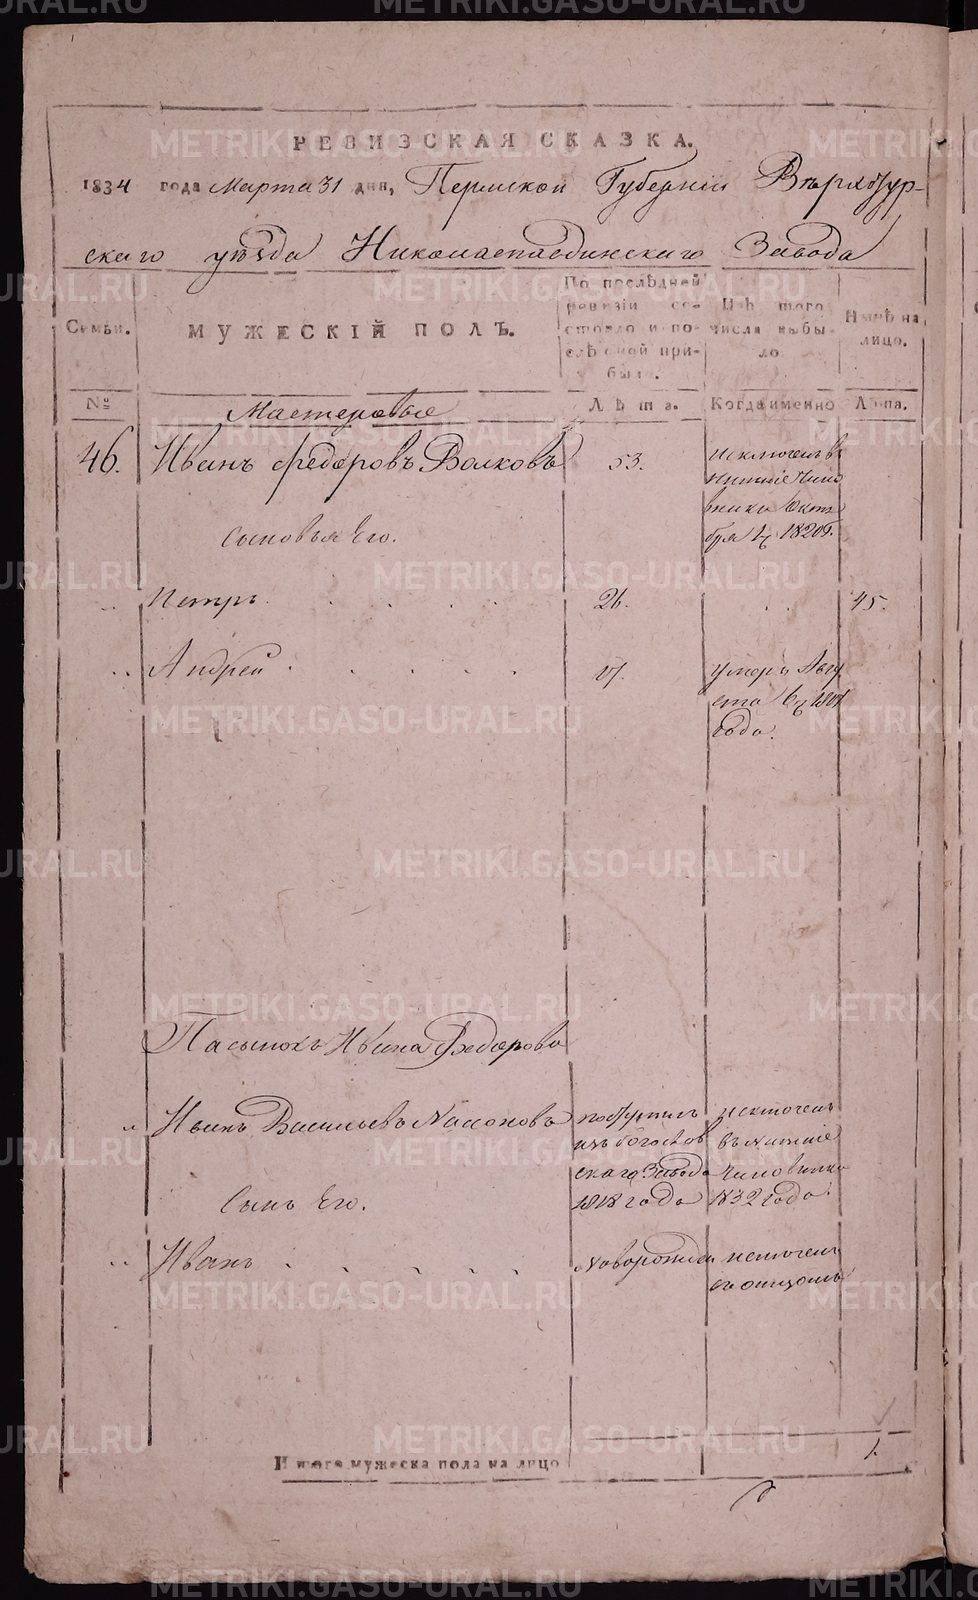 РЕВИЗСКАЯ СКАЗКА.
1834 года Марта 31 дня, Пермской Губерніи Верхотур-
скаго уѣзда Николаепавдинскаго Завода
Семьи.
МУЖЕСКІЙ ПОЛЪ.
По послѣдней ревизіи со-
стояло и по-
слѣ оной при-
было.
Изъ того
числа выбы-
ло
Нынѣ на
лицо.
№
Мастеровые
Лѣта.
Когда именно
Лѣта.
46. Иванъ Федоровъ Волковъ 53.
исключенъ въ
нитшіе Чино
вники Октя
бря 1820г.
Сыновья Его.
Петръ 26. 45.
Андрей 17.
умеръ Авгу
ста
года.
Пасынокъ Ивана Федорова
Иванъ Васильевъ
поступилъ
изъ Богослов
скаго Завода
1818 года
исключенъ
въ нитшіе
Чиновники
1832 года
Сынъ Его.
Иванъ
Новорожден
исключенъ
съ отцомъ
Итого мужеска пола на лицо 1.
METRIKI.GASO-URAL.RU